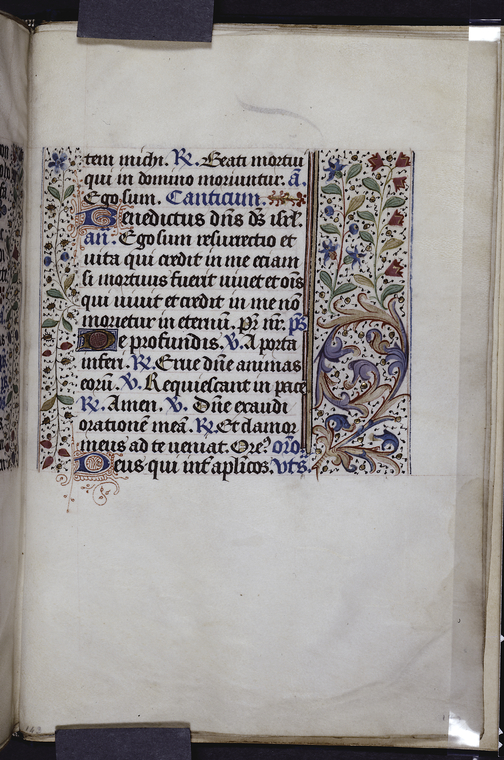 tem michi. R. Beati mortui
qui in domino moriuntur. a.
Ego sum. Canticum.
Benedictus dñs ds isrl.
añ. Ego sum resurrectio et
vita qui credit in me etiam
si mortuus fuerit vivet et oīs
qui vivit et credit in me nō
morietur in eternū. Pr nr. ps
De profundis. V. A porta
inferi. R. Erue dñe animas
eorū. V. Requiescant in pace
R. Amen. V. Dñe exaudi
orationē meā. R. Et clamor
meus ad te veniat. Ore. orō.
Deus qui inf aplicos. vts.